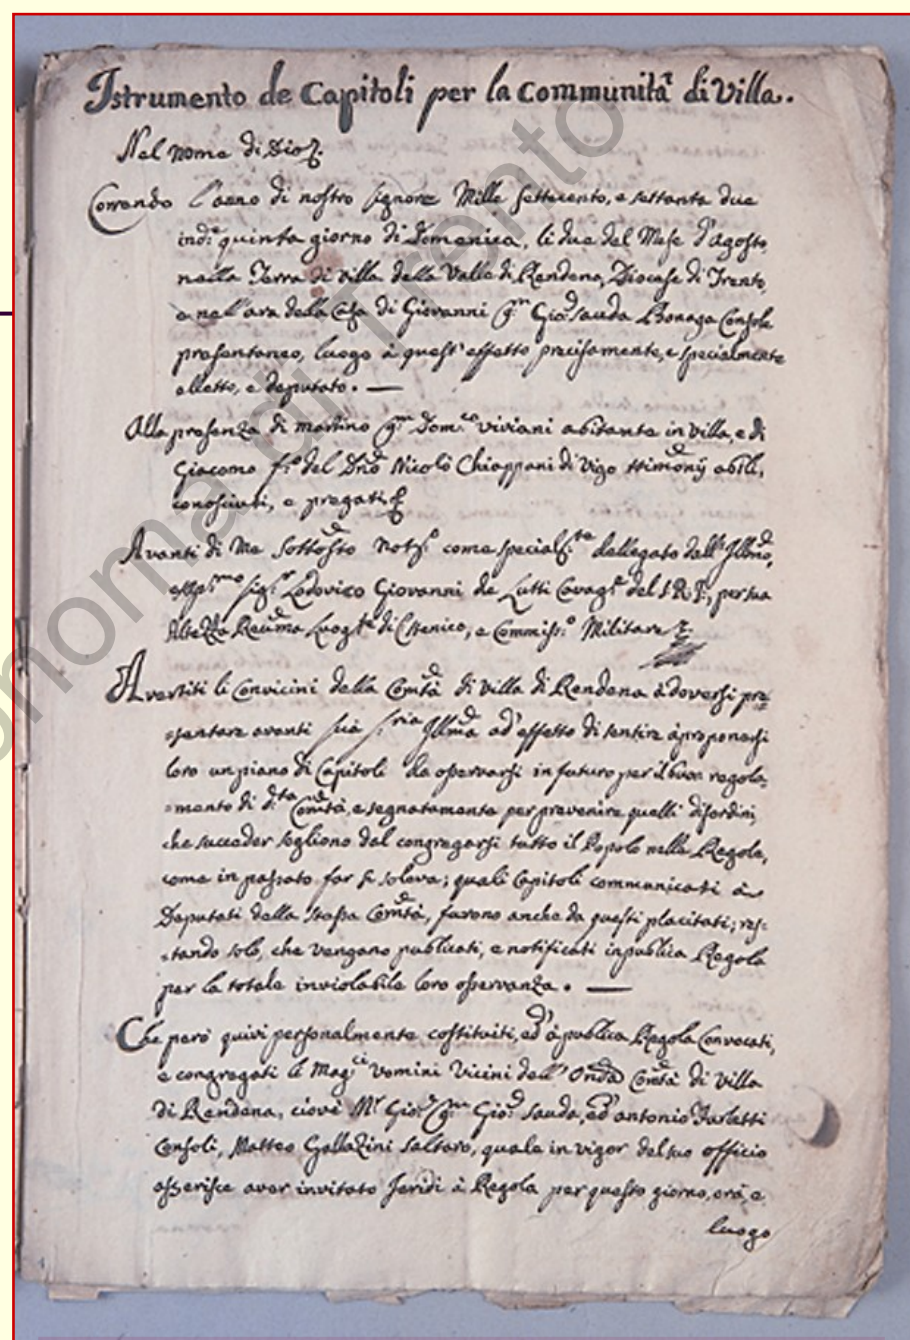 Istrumento de Capitoli per la Communità di Villa.
Nel Nome di Dio
Correndo l'anno di nostro Signore Mille settecento, e settanta due
ind.e quinta giorno di Domenica, li due del Mese d'Agosto,
nella Terra di Villa della Valle di Rendena, Diocese di Trento,
e nell'ara della Casa di Giovanni qm Gio: Bonaza Console
presentaneo, luogo à quest'effetto precisamente, e specialmente
elletto, e deputato. —
Alla presenza di Martino qm Dom.co Viviani abitante in Villa, e di
Giacomo f.o del Nicolò Chiappani di Vigo ttimonij abili,
conosciuti, e pregati
Avanti di Me Sottosto Notº come special.te dellegato dall' Illmo,
Sig.r Lodovico Giovanni de Lutti Cavag.r del S.R.I., per sua
Altezza Reuma Luogte di Stenico, e Commiss.o Militare
Avertiti li Convicini della Comtà di Villa di Rendena à doversi pre=
=sentare avanti sua Sria Illma ad' effetto di sentire à proponersi
loro un piano di Capitoli da osservarsi in futuro per il buon regola=
=mento di d.ta Comtà, e segnatamente per prevenire quelli disordini,
che succeder sogliono dal congregarsi tutto il Popolo nella Regola,
come in passato far si soleva; quali Capitoli communicati à
Deputati della stessa Comtà, furono anche da questi placitati; res=
=tando solo, che vengano publicati, e notificati in publica Regola
per la totale inviolabile loro osservanza. —
Che però quivi personalmente costituiti, ed' à publica Regola Convocati,
e congregati li Mag.ci Uomini Vicini dell' Onda Comtà di Villa
di Rendena, cioè Mr Gio: qm Gio: ed' Antonio
Consoli, Matteo Gallazini Saltaro, quale in vigor del suo officio
asserisce aver invitato Jeridì à Regola per questo giorno, ora, e
luogo